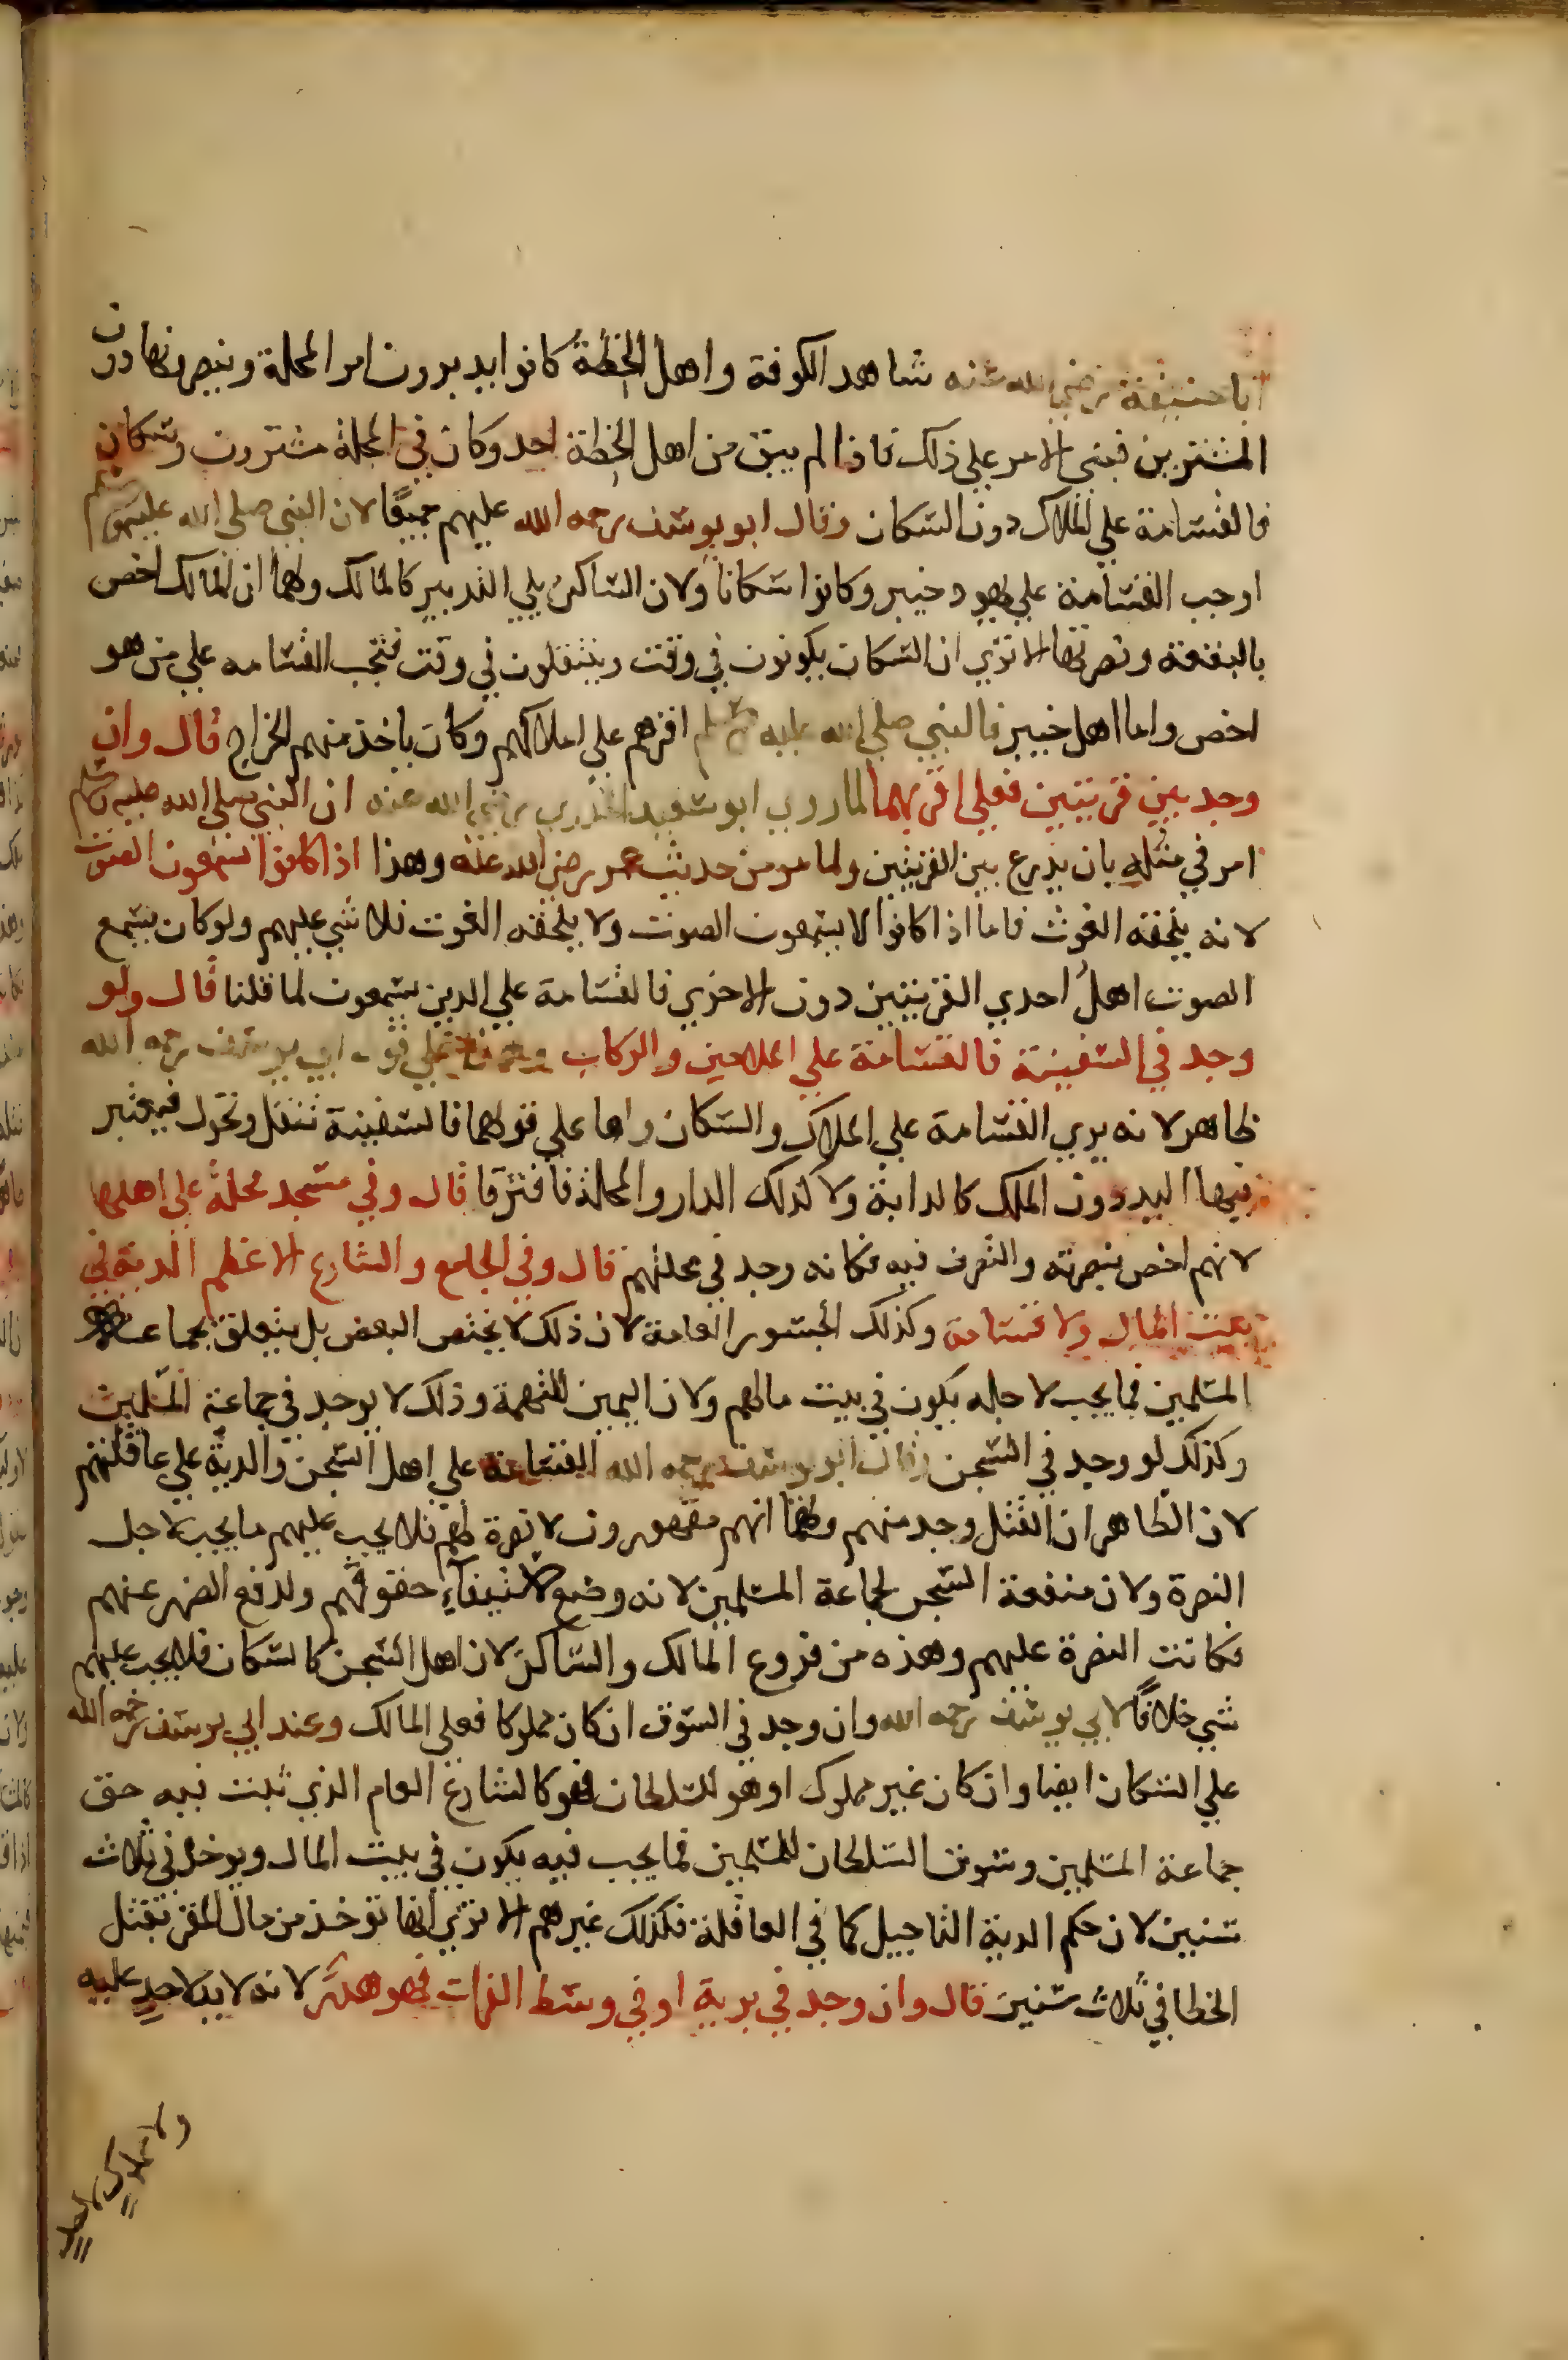 ابا حنيفة رضي الله عنه شاهد الكوفة واهل الخِطّة كانوا يدبرون امر المحلة وينصرونها دون
المشترين فبنى الامر علي ذلك فاذا لم يبق من اهل الخِطة احد وكان في المحلة مشترون وسكان
فالقسامة علي الملاك دون السكان وقال ابو يوسف رحمه الله عليهم جميعًا لان النبي صلى الله عليه وسلم
اوجب القسامة علي يهود خيبر وكانوا سكانا ولان الساكن يلي التدبير كالمالك ولهما ان المالك اخص
بالبقعة ونصرتها الا تري ان السكان يكونون في وقت وينتقلون في وقت فتجب القسامه علي من هو
اخص واما اهل خيبر فالنبي صلي الله عليه وسلم اقرهم علي املاكهم وكان ياخذ منهم الخراج قال وان
وجد بين قريتين فعلي اقربهما لما روي ابو سعيد الخدري رضي الله عنه ان النبي صلى الله عليه وسلم
امر في مثله بان يذرع بين القريتين ولما مر من حديث عمر رضي الله عنه وهذا اذا كانوا يسمعون الصوت
لانه يلحقه الغوث فاما اذا كانوا لا يسمعون الصوت ولا يلحقه الغوث فلا شي عليهم ولو كان يسمع
الصوت اهلُ احدي القريتين دون الاخري فالقسامة علي الذين يسمعون لما قلنا قال ولو
وجد في السفينة فالقسامة علي الملاحين والركاب وهذا علي قول ابي يوسف رحمه الله
ظاهر لانه يري القسامة علي الملاك والسكان واما علي قولهما فالسفينة تنقل وتحول فيعتبر
فيها اليد دون الملك كالدابة ولا كذلك الدار والمحلة فافترقا قال وفي مسجد محلةٍ علي اهلها
لانهم اخص بنصرته والتصرف فيه فكانه وجد في محلتهم قال وفي الجامع والشارع الاعظم الدية في
بيت المال ولا قسامة وكذلك الجسور العامة لان ذلك لا يختص البعض بل يتعلق بجماعة
المسلمين فما يجب لاجله يكون في بيت مالهم ولان اليمين للتهمة وذلك لا يوجد في جماعة المسلمين
وكذلك لو وجد في السجن وقال ابو يوسف رحمه الله القسامة علي اهل السجن والدية علي عاقلتهم
لان الظاهر ان القتل وجد منهم ولهما انهم مقهورون لا نصرة لهم فلا يجب عليهم ما يجب لاجل
النصرة ولان منفعة السجن لجماعة المسلمين لانه وضع لاستيفآءِ حقوقهم ولدفع الضرر عنهم
فكانت النصرة عليهم وهذه من فروع المالك والساكن لان اهل السجن كالسكان فلا يجب عليهم
شي خلافًا لابي يوسف رحمه الله وان وجد في السوق ان كان مملوكا فعلي المالك وعند ابي يوسف رحمه الله
علي السكان ايضا وان كان غير مملوك او هو للسلطان فهو كالشارع العام الذي ثبت فيه حق
جماعة المسلمين وسوق السلطان للمسلمين فما يجب فيه يكون في بيت المال ويوخذ في ثلاث
سنين لان حكم الدية التاجيل كما في العاقلة فكذلك غيرهم الا تري انها توخذ من مال المقر بقتل
الخطا في ثلاث سنين قال وان وجد في برية او في وسط الفرات فهو هدر لانه لا يد لاحدٍ عليه
ولا ملك